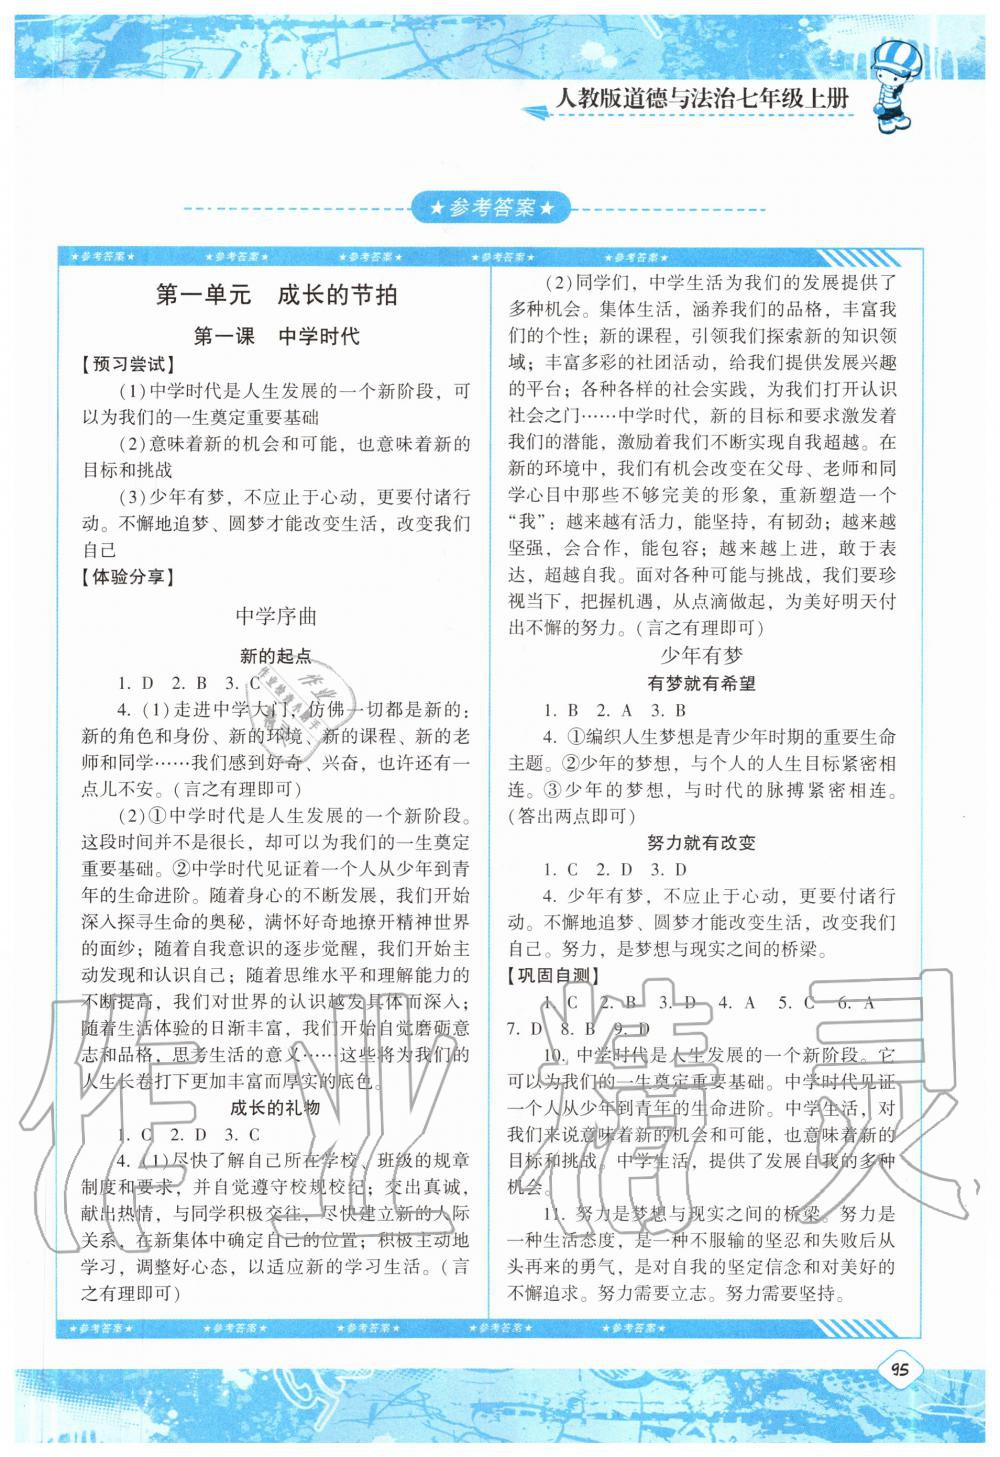 人教版道德与法治七年级上册
★参考答案★
★参考答案★ ★参考答案★ ★参考答案★ ★参考答案★ ★参考答案★
第一单元 成长的节拍
第一课 中学时代
【预习尝试】
(1)中学时代是人生发展的一个新阶段，可
以为我们的一生奠定重要基础
(2)意味着新的机会和可能，也意味着新的
目标和挑战
(3)少年有梦，不应止于心动，更要付诸行
动。不懈地追梦、圆梦才能改变生活，改变我们
自己
【体验分享】
中学序曲
新的起点
1. D 2. B 3. C
4. (1)走进中学大门，仿佛一切都是新的：
新的角色和身份、新的环境、新的课程、新的老
师和同学……我们感到好奇、兴奋，也许还有一
点儿不安。(言之有理即可)
(2)①中学时代是人生发展的一个新阶段。
这段时间并不是很长，却可以为我们的一生奠定
重要基础。②中学时代见证着一个人从少年到青
年的生命进阶。随着身心的不断发展，我们开始
深入探寻生命的奥秘，满怀好奇地撩开精神世界
的面纱；随着自我意识的逐步觉醒，我们开始主
动发现和认识自己；随着思维水平和理解能力的
不断提高，我们对世界的认识越发具体而深入；
随着生活体验的日渐丰富，我们开始自觉磨砺意
志和品格，思考生活的意义……这些将为我们的
人生长卷打下更加丰富而厚实的底色。
成长的礼物
1. C 2. D 3. C
4. (1)尽快了解自己所在学校、班级的规章
制度和要求，并自觉遵守校规校纪；交出真诚，
献出热情，与同学积极交往，尽快建立新的人际
关系，在新集体中确定自己的位置；积极主动地
学习，调整好心态，以适应新的学习生活。(言
之有理即可)
(2)同学们，中学生活为我们的发展提供了
多种机会。集体生活，涵养我们的品格，丰富我
们的个性；新的课程，引领我们探索新的知识领
域；丰富多彩的社团活动，给我们提供发展兴趣
的平台；各种各样的社会实践，为我们打开认识
社会之门……中学时代，新的目标和要求激发着
我们的潜能，激励着我们不断实现自我超越。在
新的环境中，我们有机会改变在父母、老师和同
学心目中那些不够完美的形象，重新塑造一个
“我”：越来越有活力，能坚持，有韧劲；越来越
坚强，会合作，能包容；越来越上进，敢于表
达，超越自我。面对各种可能与挑战，我们要珍
视当下，把握机遇，从点滴做起，为美好明天付
出不懈的努力。(言之有理即可)
少年有梦
有梦就有希望
1. B 2. A 3. B
4. ①编织人生梦想是青少年时期的重要生命
主题。②少年的梦想，与个人的人生目标紧密相
连。③少年的梦想，与时代的脉搏紧密相连。
(答出两点即可)
努力就有改变
1. C 2. D 3. D
4. 少年有梦，不应止于心动，更要付诸行
动。不懈地追梦、圆梦才能改变生活，改变我们
自己。努力，是梦想与现实之间的桥梁。
【巩固自测】
1. C 2. B 3. D 4. A 5. C 6. A
7. D 8. B 9. D
10. 中学时代是人生发展的一个新阶段。它
可以为我们的一生奠定重要基础。中学时代见证
一个人从少年到青年的生命进阶。中学生活，对
我们来说意味着新的机会和可能，也意味着新的
目标和挑战。中学生活，提供了发展自我的多种
机会。
11. 努力是梦想与现实之间的桥梁。努力是
一种生活态度，是一种不服输的坚忍和失败后从
头再来的勇气，是对自我的坚定信念和对美好的
不懈追求。努力需要立志。努力需要坚持。
★参考答案★ ★参考答案★ ★参考答案★ ★参考答案★ ★参考答案★
95
作业精灵